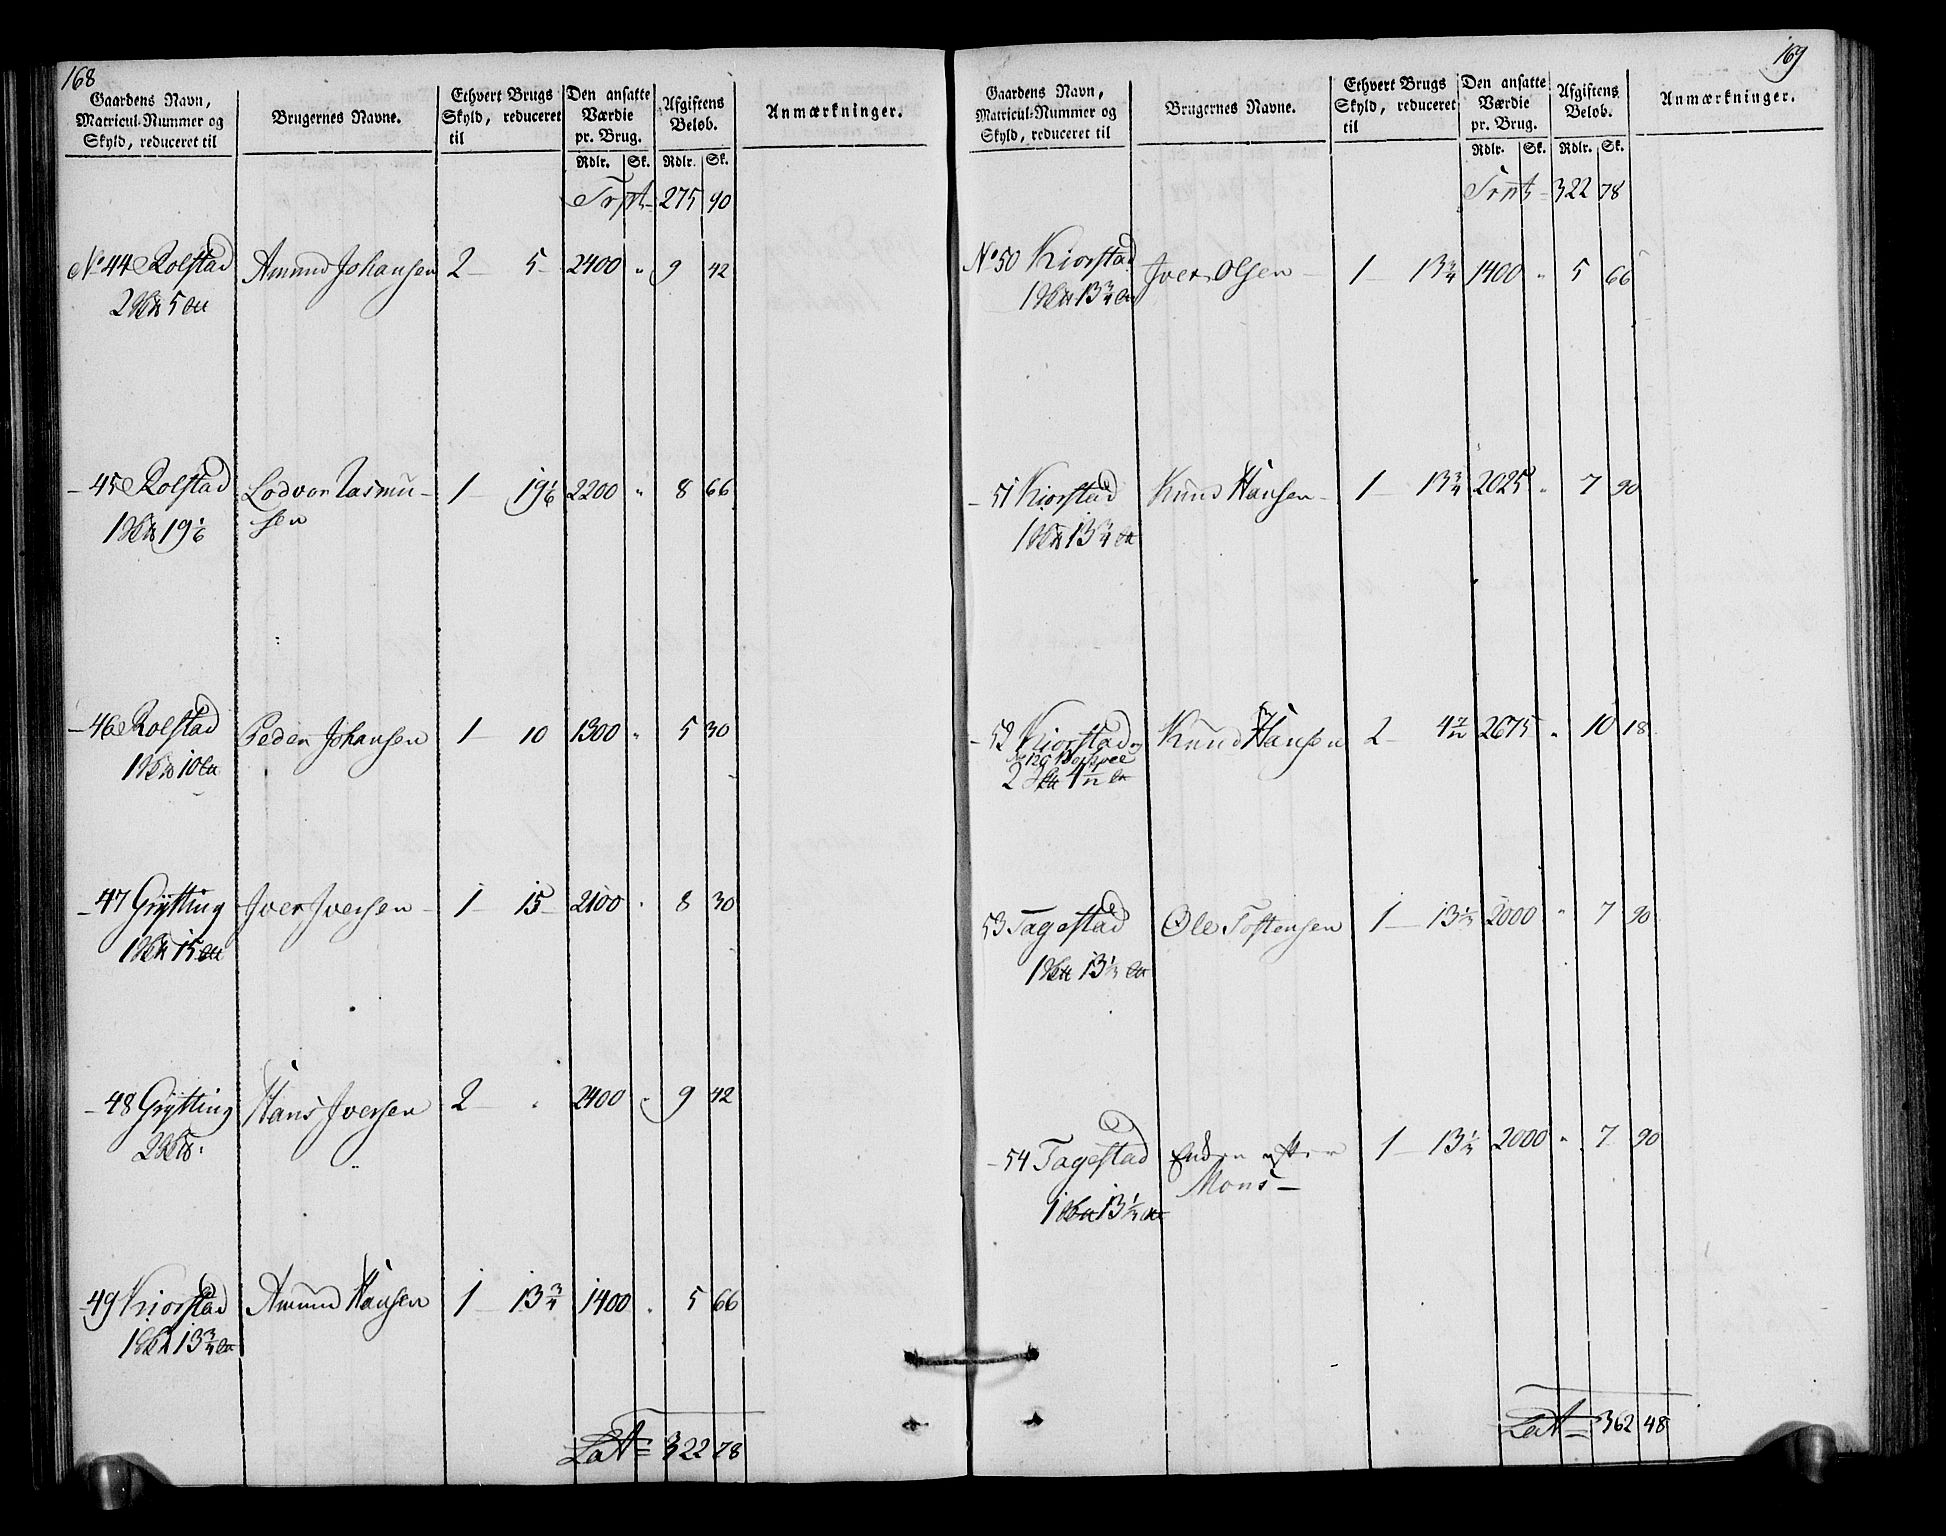 168
Gaardens Navn, Matricul-Nummer og Skyld, reduceret til
Brugernes Navne.
Ethvert Brugs Skyld, reduceret til
Den ansatte Værdie pr. Brug.
Afgiftens Beløb.
Anmærkninger.
Rdlr. Sk. Rdlr. Sk.
Trpt 275 90
No 44 Rolstad Amund Johansen 2 5 2400 " 9 42
2 5
45 Rolstad Lodvor Rasmu- 1 19 1/6 2200 " 8 66
sen
1 19 1/6
46 Rolstad Peder Johansen 1 10 1300 " 5 30
1 10
47 Grytting Iver Iversen 1 15 2100 " 8 30
1 15
48 Grytting Hans Iversen 2 " 2400 " 9 42
2
49 Kiorstad Amund Hansen 1 13 3/4 1400 " 5 66
1 13 3/4
Lat 322 78
169
Gaardens Navn, Matricul-Nummer og Skyld, reduceret til
Brugernes Navne.
Ethvert Brugs Skyld, reduceret til
Den ansatte Værdie pr. Brug.
Afgiftens Beløb.
Anmærkninger.
Rdlr. Sk. Rdlr. Sk.
Trpt 322 78
No 50 Kiorstad Iver Olsen 1 13 3/4 1400 " 5 66
1 13 3/4
51 Kiorstad Knud Hansen 1 13 3/4 2025 " 7 90
1 13 3/4
52 Kiorstad og Knud Hansen 2 4 2675 " 10 18
2 4
53 Tagestad Ole Tostensen 1 13 2000 " 7 90
1 13
54 Tagestad efter 1 13 2000 " 7 90
Mons
1 13
Lat 362 48